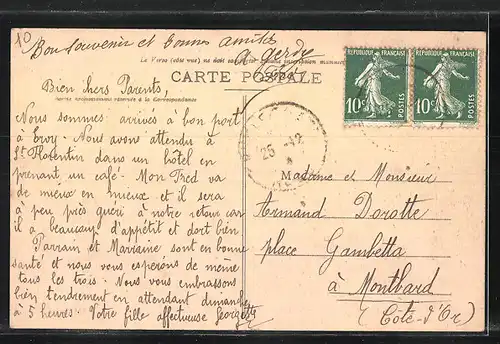 10
Bon Souvenir et bonnes amitiés
CARTE POSTALE
Bien chers Parents,
Nous sommes arrivés à bon port
à Ervy. Nous avons attendu à
St Florentin dans un hôtel en
prenant un café. Mon Fred va
de mieux en mieux et il sera
à peu près guéri à notre retour car
il a beaucoup d'appétit et dort bien
Parrain et Marraine sont en bonne
santé et nous vous espérons de même
tous les trois. Nous vous embrassons
bien tendrement en attendant dimanche
à 5 heures. Votre fille affectueuse Georgette
RÉPUBLIQUE FRANÇAISE
10c
POSTES
RÉPUBLIQUE FRANÇAISE
10c
POSTES
25-12
Madame et Monsieur
Armand Dorotte
place Gambetta
à Montbard
(Côte-d'Or)